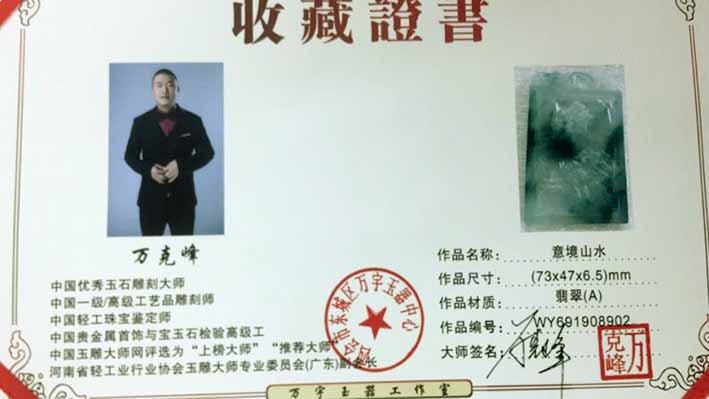 收藏證書
万克峰
中国优秀玉石雕刻大师
中国一级/高级工艺品雕刻师
中国轻工珠宝鉴定师
中国贵金属首饰与宝玉石检验高级工
中国玉雕大师网评选为“上榜大师”“推荐大师”
河南省轻工业行业协会玉雕大师专业委员会(广东)副会长
四会市东城区万宇玉器中心
作品名称: 意境山水
作品尺寸: (73x47x6.5)mm
作品材质: 翡翠(A)
作品编号: WY691908902
大师签名: 万克峰
万克峰
万宇玉器工作室